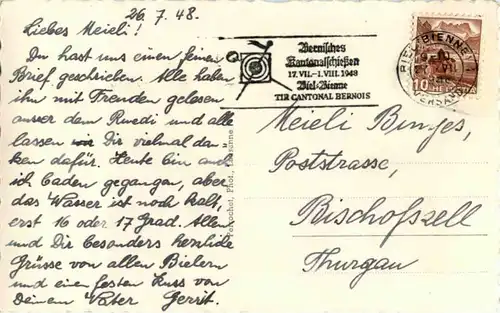 26.7.48.
Liebes Meieli!
Du hast uns einen feinen
Brief geschrieben. Alle haben
ihn mit Freuden gelesen
ausser dem Ruedi und alle
lassen Dir vielmal dan-
ken dafür. Heute bin auch
ich baden gegangen, aber
das Wasser ist noch kalt,
erst 16 oder 17 Grad. Allen
und Dir besonders herzliche
Grüsse von allen Bielern
und einen festen Kuss von
Deinem Vater Gerrit.
Bernisches
Kantonalschießen
17.VII.-1.VIII.1948
Biel-Bienne
TIR CANTONAL BERNOIS
BIEL-BIENNE
VERSAND
10
Perrochet, Phot., Lausanne
Meieli Binges,
Poststrasse,
Bischofszell
Thurgau